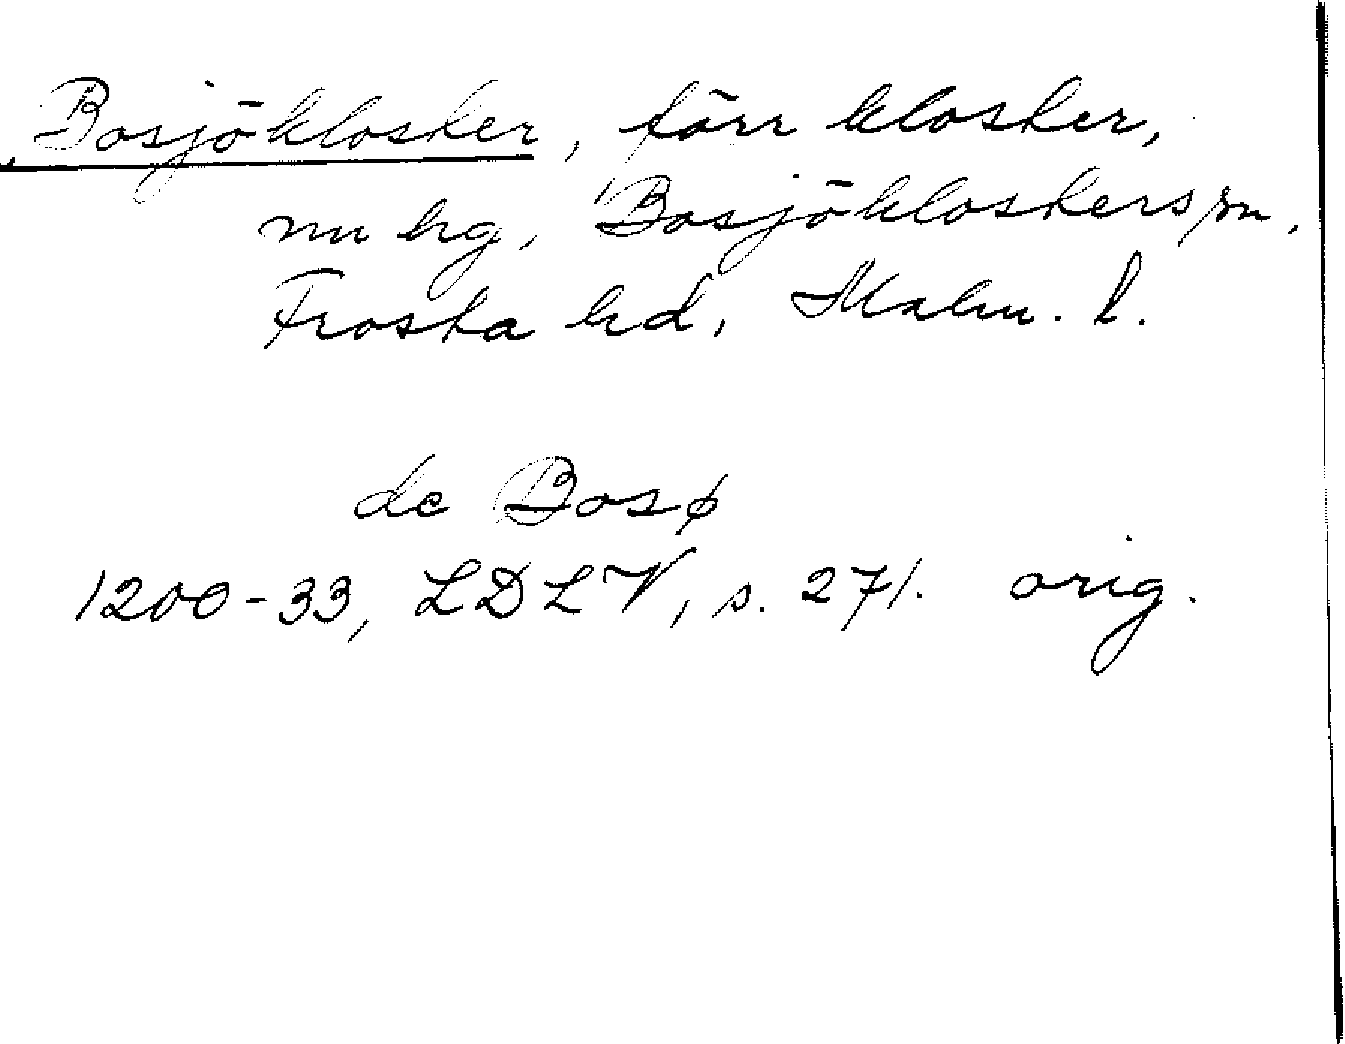 Bosjökloster, förr kloster,
nu hg, Bosjöklosters sn,
Frosta hd, Malm. l.
de Bosø
1200-33, LDLV, s. 271. orig.